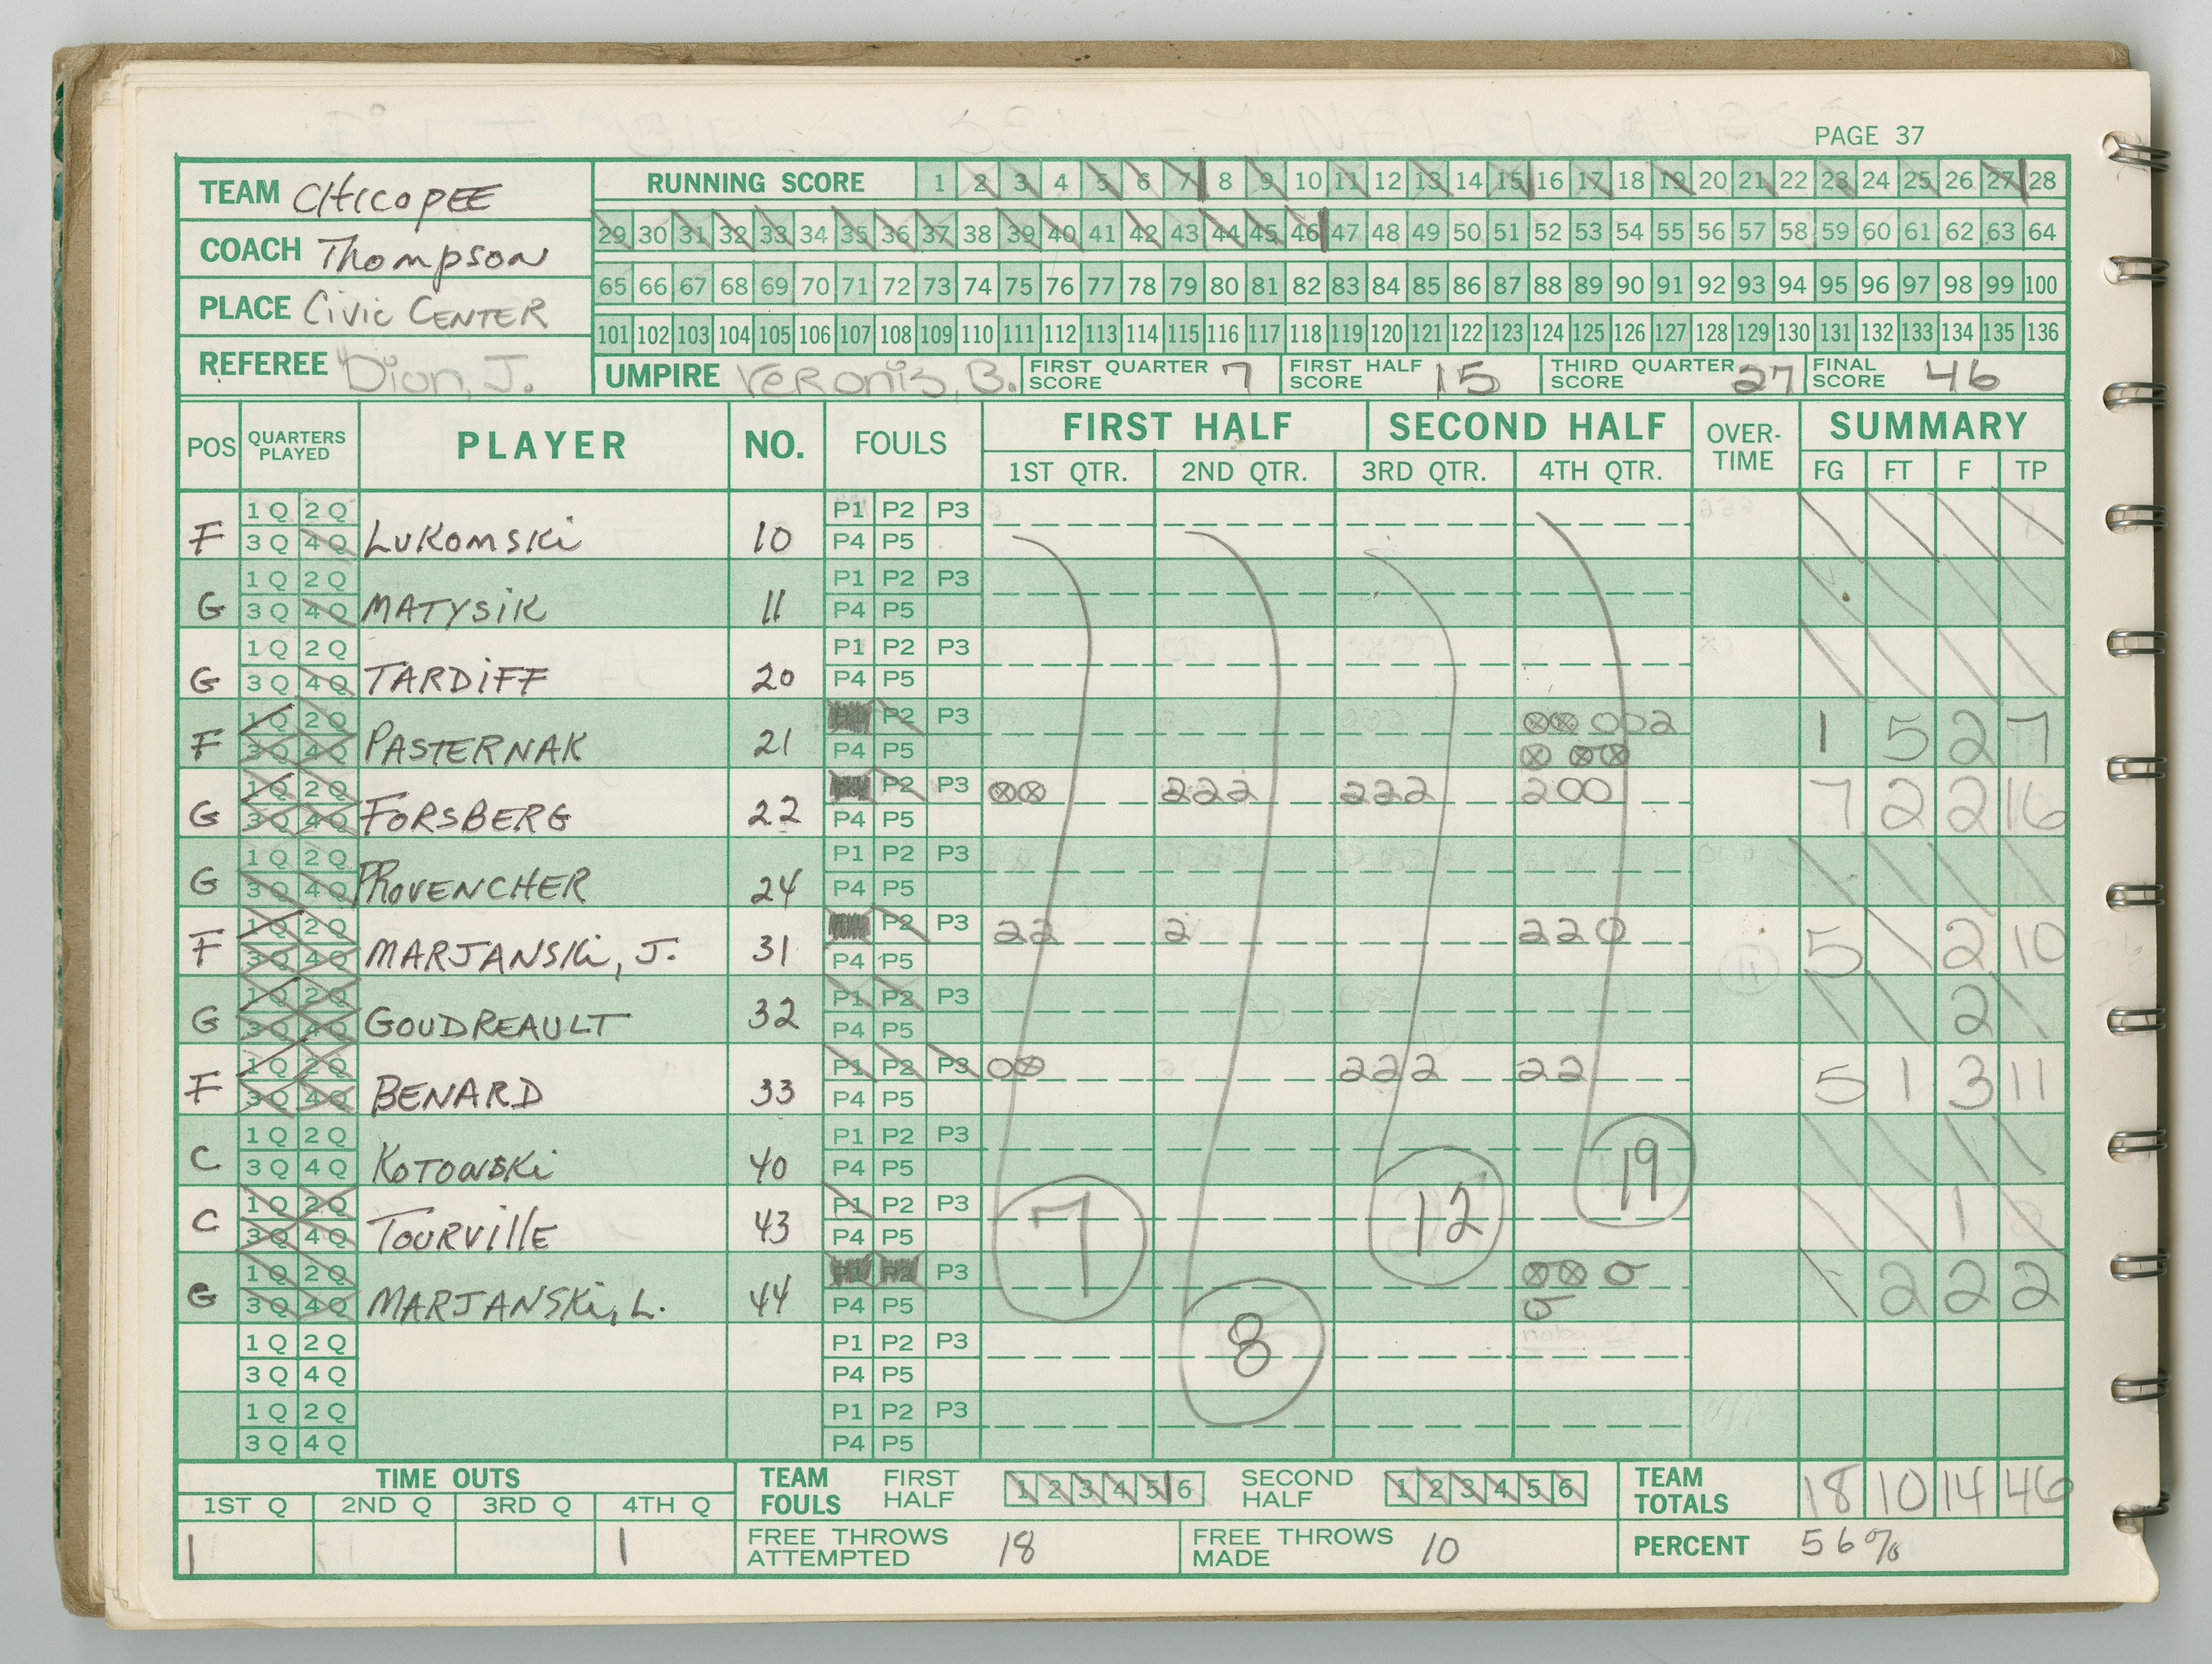 PAGE 37
TEAM CHICOPEE
COACH Thompson
PLACE Civic CENTER
REFEREE Dion, J.
RUNNING SCORE 1 2 3 4 5 6 7 8 9 10 11 12 13 14 15 16 17 18 19 20 21 22 23 24 25 26 27 28
29 30 31 32 33 34 35 36 37 38 39 40 41 42 43 44 45 46 47 48 49 50 51 52 53 54 55 56 57 58 59 60 61 62 63 64
65 66 67 68 69 70 71 72 73 74 75 76 77 78 79 80 81 82 83 84 85 86 87 88 89 90 91 92 93 94 95 96 97 98 99 100
101 102 103 104 105 106 107 108 109 110 111 112 113 114 115 116 117 118 119 120 121 122 123 124 125 126 127 128 129 130 131 132 133 134 135 136
UMPIRE Veronis, B. FIRST QUARTER SCORE 7 FIRST HALF SCORE 15 THIRD QUARTER SCORE 27 FINAL SCORE 46
POS QUARTERS PLAYED PLAYER NO. FOULS FIRST HALF SECOND HALF OVER-TIME SUMMARY
1ST QTR. 2ND QTR. 3RD QTR. 4TH QTR. FG FT F TP
1 Q 2 Q P1 P2 P3
F 3 Q 4 Q LUKOMSKi 10 P4 P5
1 Q 2 Q P1 P2 P3
G 3 Q 4 Q MATYSiK 11 P4 P5
1 Q 2 Q P1 P2 P3
G 3 Q 4 Q TARDiFF 20 P4 P5
1 Q 2 Q P2 P3 ⊗⊗ 002
F 3 Q 4 Q PASTERNAK 21 P4 P5 ⊗ ⊗⊗ 1 5 2 7
1 Q 2 Q P2 P3 ⊗⊗ 222 222 200
G 3 Q 4 Q FORSBERG 22 P4 P5 7 2 2 16
1 Q 2 Q P1 P2 P3
G 3 Q 4 Q PROVENCHER 24 P4 P5
1 Q 2 Q P2 P3 22 2 220
F 3 Q 4 Q MARJANSKi, J. 31 P4 P5 5 2 10
1 Q 2 Q P1 P2 P3
G 3 Q 4 Q GOUDREAULT 32 P4 P5 2
1 Q 2 Q P1 P2 P3 0⊗ 222 22
F 3 Q 4 Q BENARD 33 P4 P5 5 1 3 11
1 Q 2 Q P1 P2 P3
C 3 Q 4 Q KOTOWSKi 40 P4 P5 19
1 Q 2 Q P1 P2 P3
C 3 Q 4 Q TOURVIllE 43 P4 P5 7 12 1
1 Q 2 Q P1 P2 P3 ⊗⊗ 0
G 3 Q 4 Q MARJANSKi, L. 44 P4 P5 0 2 2 2
1 Q 2 Q P1 P2 P3 8
3 Q 4 Q P4 P5
1 Q 2 Q P1 P2 P3
3 Q 4 Q P4 P5
TIME OUTS TEAM FOULS FIRST HALF 1 2 3 4 5 6 SECOND HALF 1 2 3 4 5 6 TEAM TOTALS 18 10 14 46
1ST Q 2ND Q 3RD Q 4TH Q
1 1 FREE THROWS ATTEMPTED 18 FREE THROWS MADE 10 PERCENT 56%